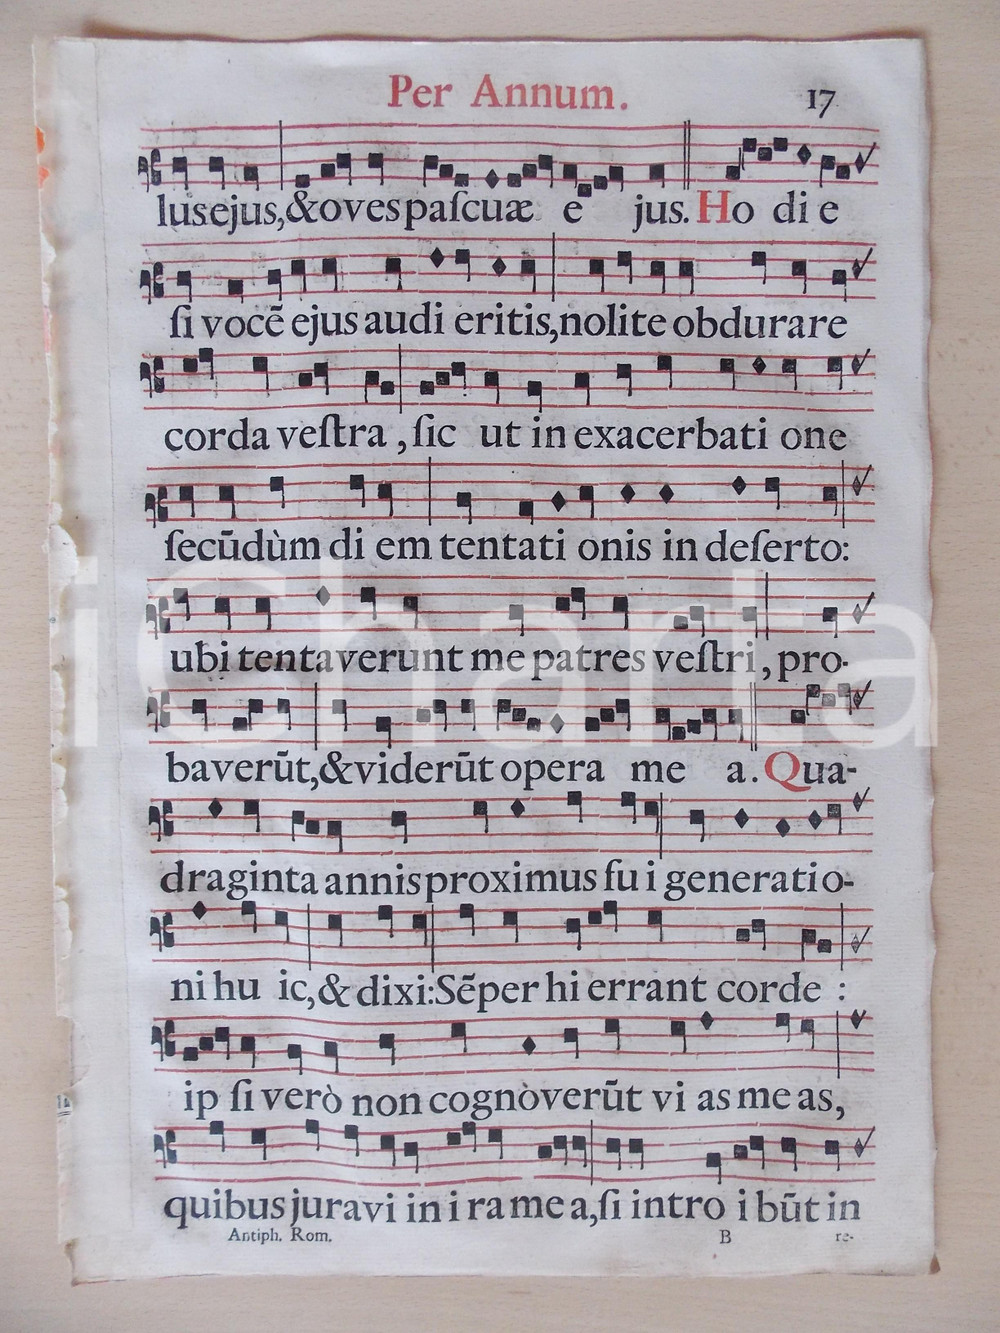 Per Annum. 17
lus ejus, & oves paſcuæ e jus. Ho di e
ſi vocẽ ejus audi eritis, nolite obdurare
corda veſtra, ſic ut in exacerbati one
ſecũdùm di em tentati onis in deſerto:
ubi tentaverunt me patres veſtri, pro-
baverũt, & viderũt opera me a. Qua-
draginta annis proximus fu i generatio-
ni hu ic, & dixi: Sẽper hi errant corde :
ip ſi verò non cognoverũt vi as me as,
quibus juravi in i ra me a, ſi intro i bũt in
Antiph. Rom. B re-
iCharta